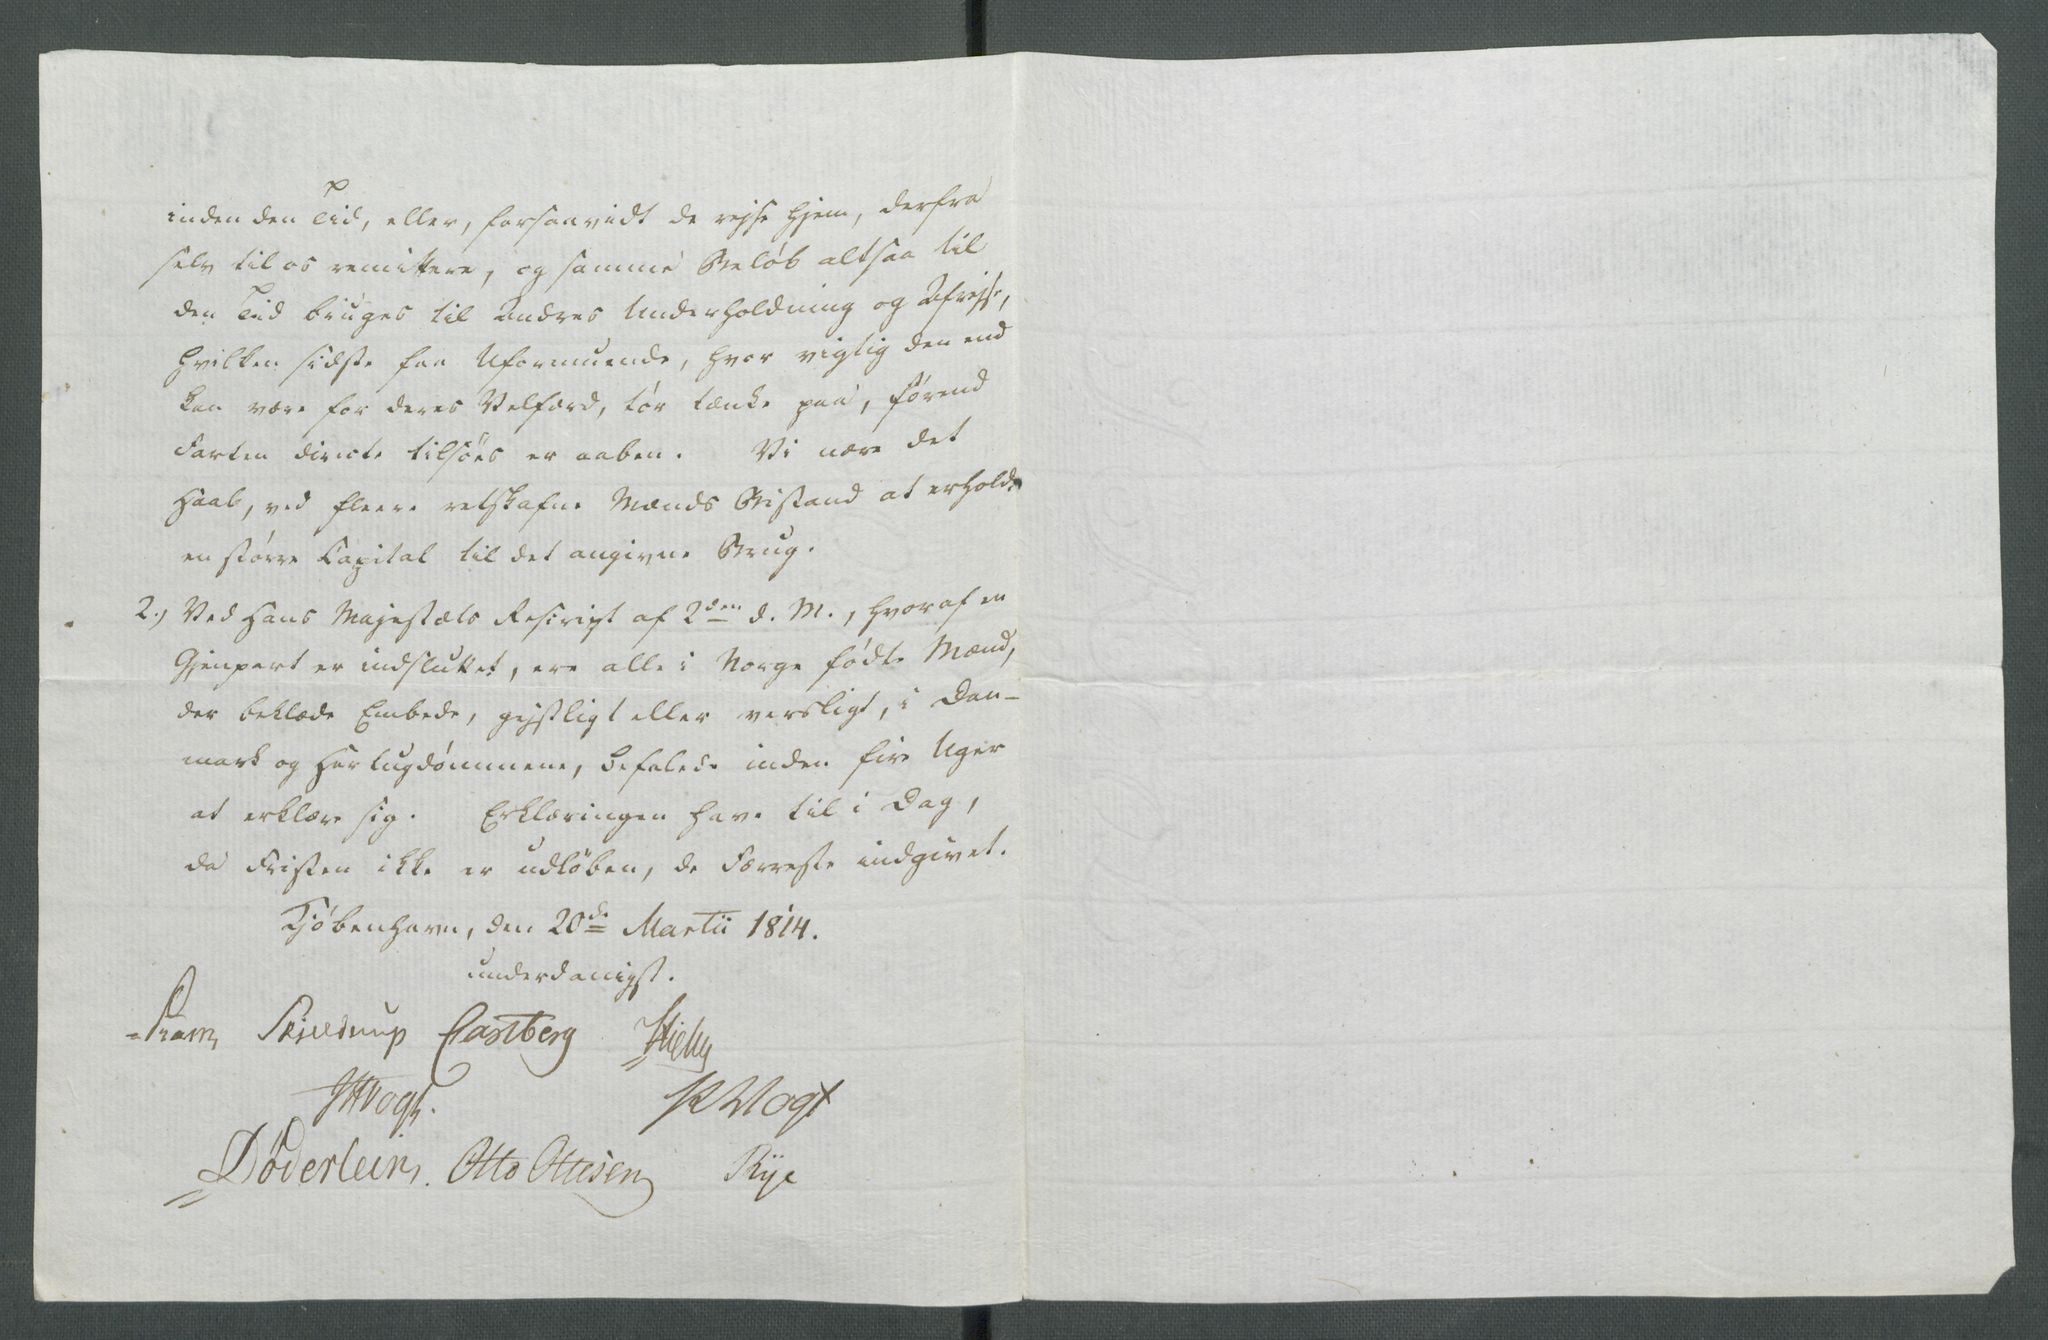 inden den Tid, eller, forsaavidt de rejse hjem, derfra
selv til os remittere, og samme Beløb altsaa til
den Tid bruges til Andres Underholdning og Afrejse,
hvilken sidste faa Uformuende, hvor vigtig den end
kan være for deres Velfærd, tør tænke paa, førend
Farten directe tilsöes er aaben. Vi nære det
Haab, ved fleere retskafne Mænds Bistand at erholde
en större Capital til det angivne Brug.
2.) Ved Hans Majestæts Rescript af 2den d. M., hvoraf en
Gjenpart er indsluttet, ere alle i Norge födte Mænd,
der beklæde Embede, gejstligt eller versligt, i Dan-
mark og Hertugdömmene, befalede inden fire Uger
at erklære sig. Erklæringen have til i Dag,
da Fristen ikke er udlöben, de Færreste indgivet.
Kjöbenhavn, den 20de Martii 1814.
underdanigst.
Pram Skjelderup Castberg
JHVogt. Vogt
Döderlein. Otto Ottesen Rye